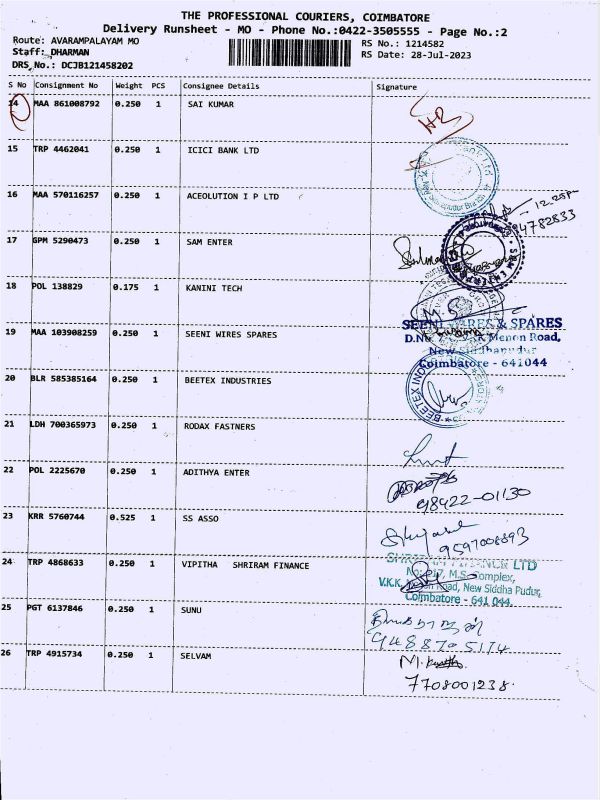 THE PROFESSIONAL COURIERS, COIMBATORE
Delivery Runsheet - MO - Phone No.:0422-3505555 - Page No.:2
Route: AVARAMPALAYAM MO
RS No.: 1214582
Staff: DHARMAN
RS Date: 28-Jul-2023
DRS No.: DCJB121458202
S No Consignment No Weight PCS Consignee Details Signature
14 MAA 861008792 0.250 1 SAI KUMAR
15 TRP 4462041 0.250 1 ICICI BANK LTD
16 MAA 570116257 0.250 1 ACEOLUTION I P LTD
12.25P
4782833
17 GPM 5290473 0.250 1 SAM ENTER
18 POL 138829 0.175 1 KANINI TECH
SEENI WIRES & SPARES
19 MAA 103908259 0.250 1 SEENI WIRES SPARES
Menon Road,
New Siddhapudur
Coimbatore - 641044
20 BLR 585385164 0.250 1 BEETEX INDUSTRIES
BEETEX
21 LDH 700365973 0.250 1 RODAX FASTNERS
22 POL 2225670 0.250 1 ADITHYA ENTER
98422-01130
23 KRR 5760744 0.525 1 SS ASSO
9597008893
24 TRP 4868633 0.250 1 VIPITHA SHRIRAM FINANCE
FINANCE LTD
M.S. Complex,
V.K.K. Menon Road, New Siddha Pudur,
Coimbatore - 641 044.
25 PGT 6137846 0.250 1 SUNU
9488705114
26 TRP 4915734 0.250 1 SELVAM
M.
7708001238